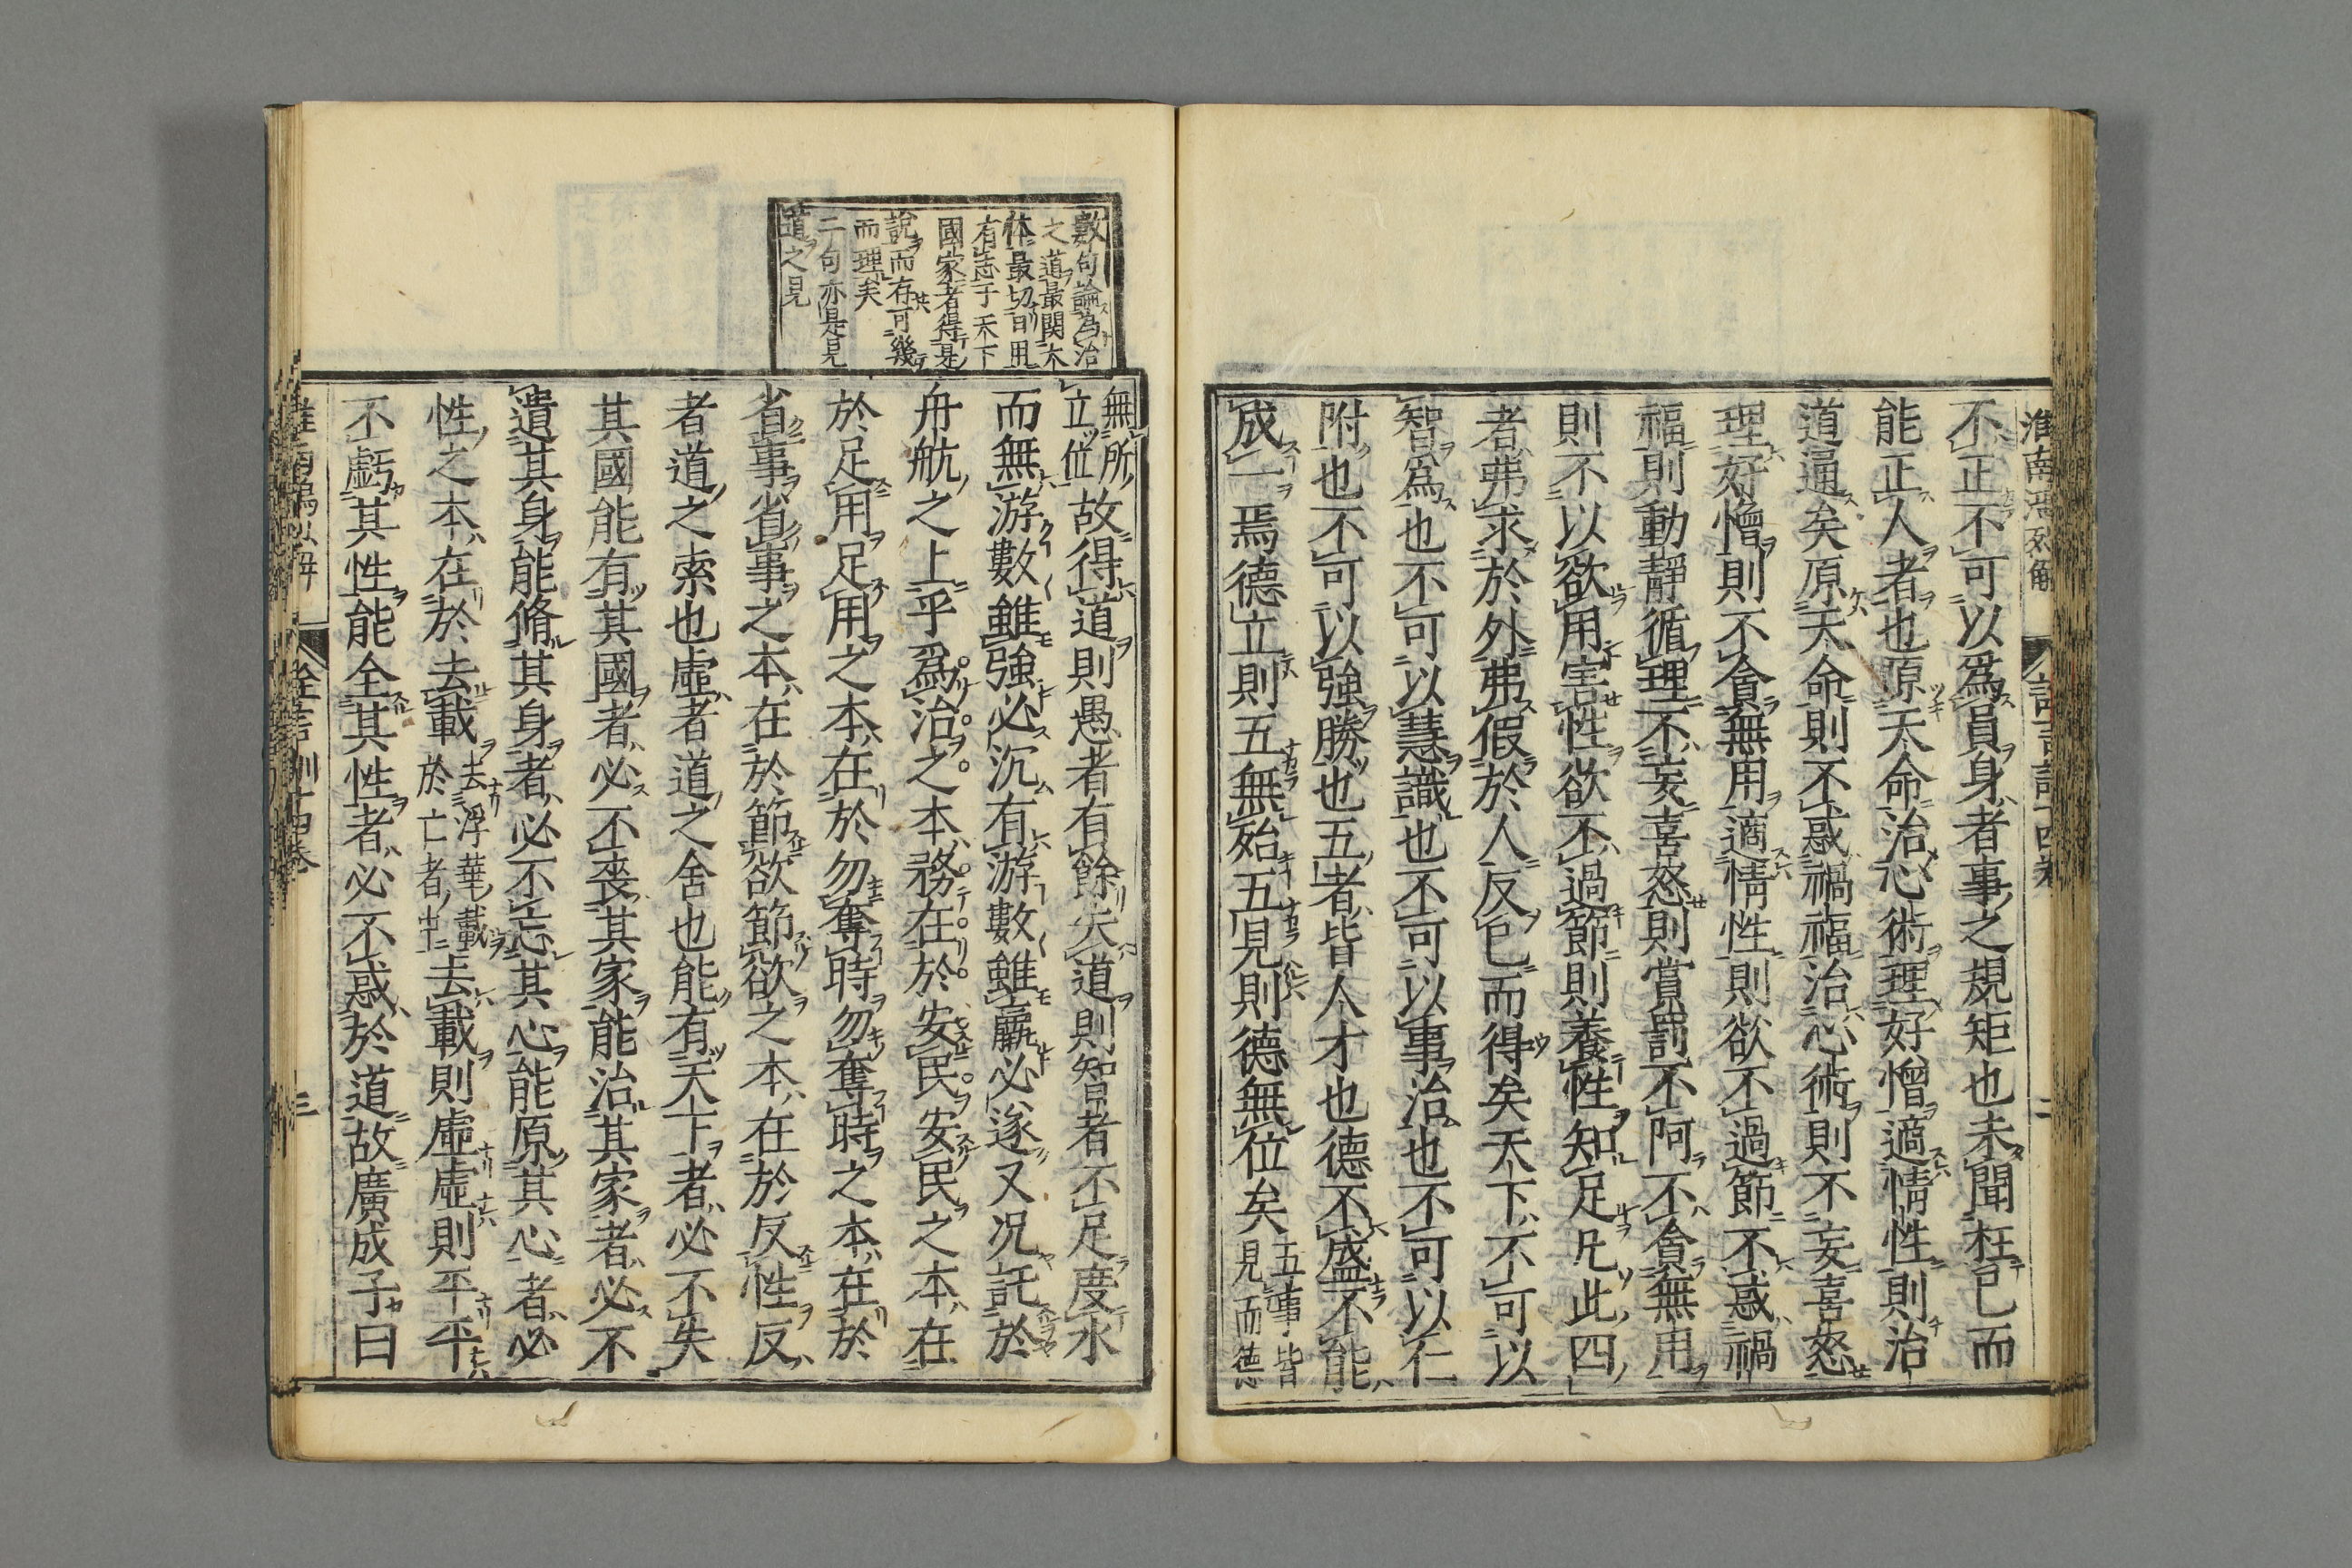 淮南鴻烈解 詮言訓十四卷 二
不正不可以爲員身者事之規矩也未聞枉已而
能正人者也原天命治心術理好憎適情性則治
道通矣原天命則不惑禍福治心術則不妄喜怒
理好憎則不貪無用適情性則欲不過節不惑禍
福則動靜循理不妄喜怒則賞罰不阿不貪無用
則不以欲用害性欲不過節則養性知足凡此四
者弗求於外弗假於人反已而得矣天下不可以
智爲也不可以慧識也不可以事治也不可以仁
附也不可以強勝也五者皆人才也德不盛不能
成一焉德立則五無殆五見則德無位矣五事皆見而德
數句論為治
之道最関大
体最切日用
有志于天下
國家者得是
說而存可幾
而理矣
二句亦是見
道之見
無所立位故得道則愚者有餘失道則智者不足度水
而無游數雖強必沉有游數雖羸必遂又况託於
舟航之上乎爲治之本務在於安民安民之本在
於足用足用之本在於勿奪時勿奪時之本在於
省事省事之本在於節欲節欲之本在於反性反
性之本在於去載去浮華載於亡者中去載則虛虛則平平
者道之索也虛者道之舍也能有天下者必不失
其國能有其國者必不喪其家能治其家者必不
遺其身能脩其身者必不忘其心能原其心者必
不虧其性能全其性者必不惑於道故廣成子曰
詮言訓十四卷 三